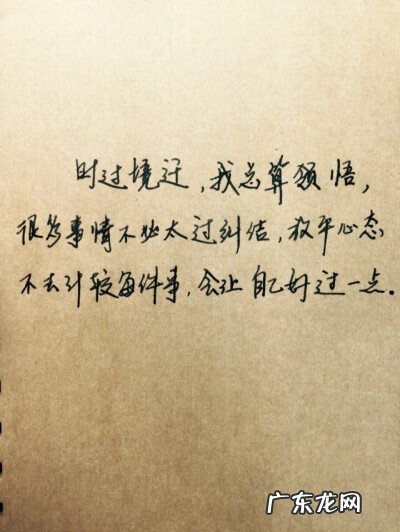 时过境迁，我总算领悟，
很多事情不必太过纠结，放平心态
不去计较每件事，会让自己好过一点。
广东龙网